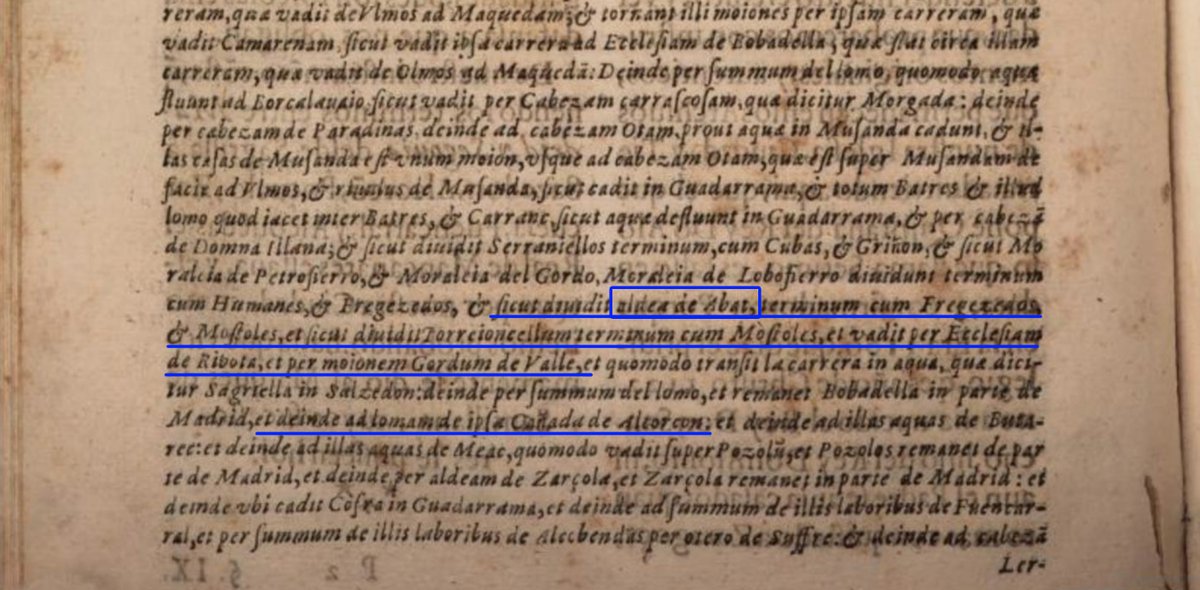 reram, quæ vadit de Vlmos ad Maquedam; & tornant illi moiones per ipsam carreram, quæ
vadit Camarenam sicut vadit ipsa carrera ad Ecclesiam de Bobadella, quæ stat circa illam
carreram, quæ vadit de Olmos ad Maquedā: Deinde per summum del lomo, quomodo aquæ
fluunt ad Borcalauaio, sicut vadit per Cabezam carrascosam, quæ dicitur Morgada: deinde
per cabezam de Paradinas, deinde ad cabezam Otam, prout aquæ in Musanda cadunt, & il-
las casas de Musanda est vnum moion, vsque ad cabezam Otam, quæ est super Musandam de
facie ad Vlmos, & riuulus de Musanda, sicut cadit in Guadarrama, & totum Batres & illud
lomo quod iacet inter Batres, & Carranc, sicut aquæ defluunt in Guadarrama, & per cabezā
de Domna Illana; & sicut diuidit Serraniellos terminum, cum Cubas, & Griñon, & sicut Mo
raleia de Petrofierro, & Moraleia del Gordo, Moraleia de Lobofierro diuidunt terminum
cum Humanes, & Fregezedos, & sicut diuidit aldea de Abat, terminum cum Fregezedos,
& Mostoles, et sicut diuidit Torreioncellum terminum cum Mostoles, et vadit per Ecclesiam
de Ribota, et per moionem Gordum de Valle, et quomodo transit la carrera in aqua, quæ dici-
tur Sagriella in Salzedon: deinde per summum del lomo, et remanet Bobadella in parte de
Madrid, et deinde ad lomam de ipsa Cañada de Alcorcon: et deinde ad illas aquas de Buta-
rec: et deinde ad illas aquas de Meac, quomodo vadit super Pozolū, et Pozolos remanet de par
te de Madrid, et deinde per aldeam de Zarçola, et Zarçola remanet in parte de Madrid: et
deinde vbi cadit Cofra in Guadarrama, et deinde ad summum de illis laboribus de Fuencar-
ral, et per summum de illis laboribus de Alcobendas per otero de Suffre: & deinde ad cabezā
Ler-